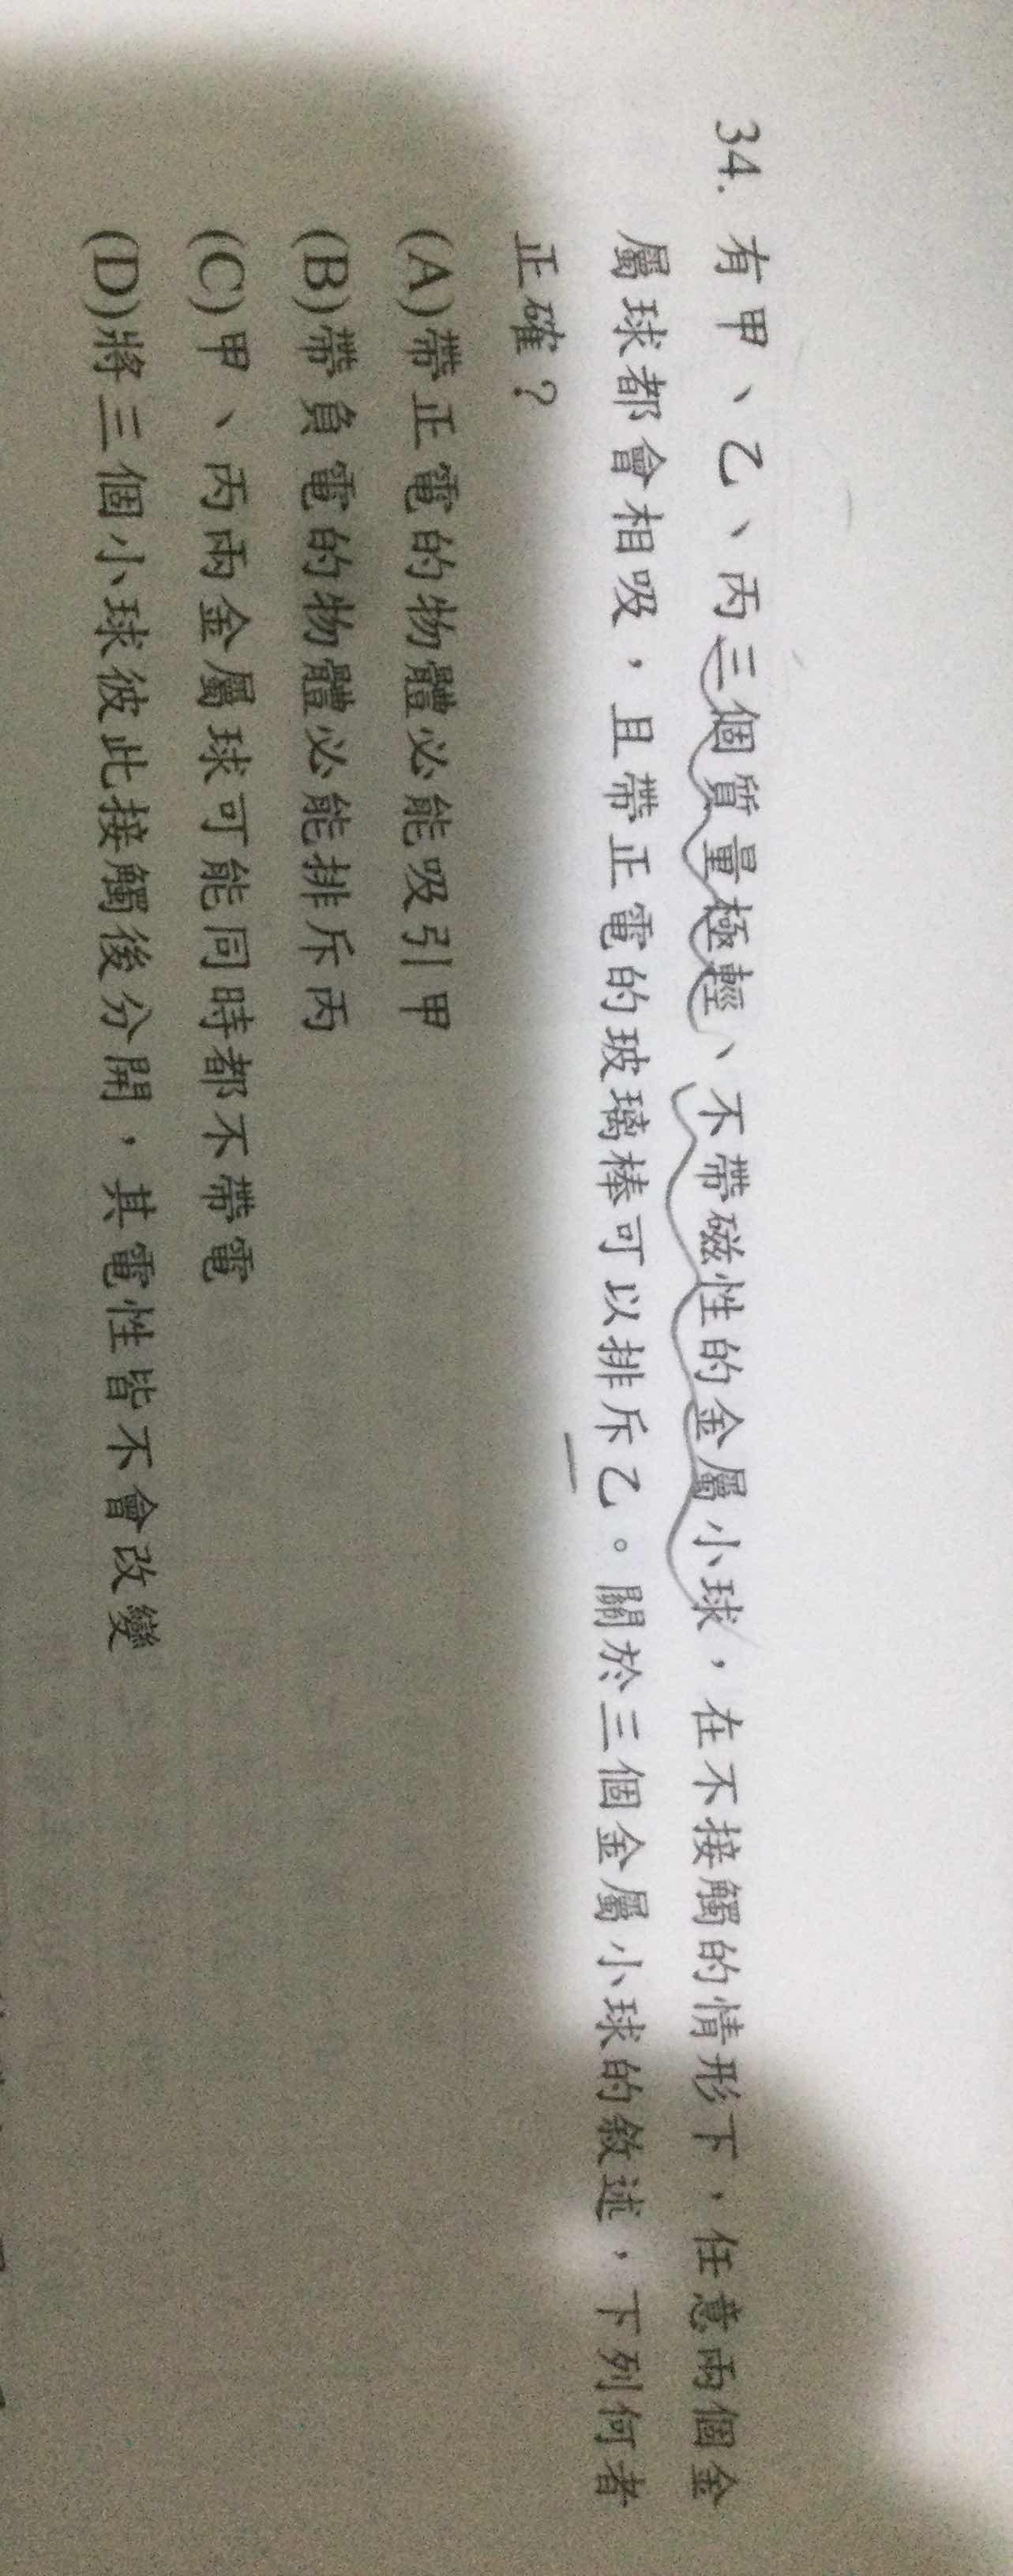 34. 有甲、乙、丙三個質量極輕、不帶磁性的金屬小球，在不接觸的情形下，任意兩個金
屬球都會相吸，且帶正電的玻璃棒可以排斥乙。關於三個金屬小球的敘述，下列何者
正確？
(A)帶正電的物體必能吸引甲
(B)帶負電的物體必能排斥丙
(C)甲、丙兩金屬球可能同時都不帶電
(D)將三個小球彼此接觸後分開，其電性皆不會改變